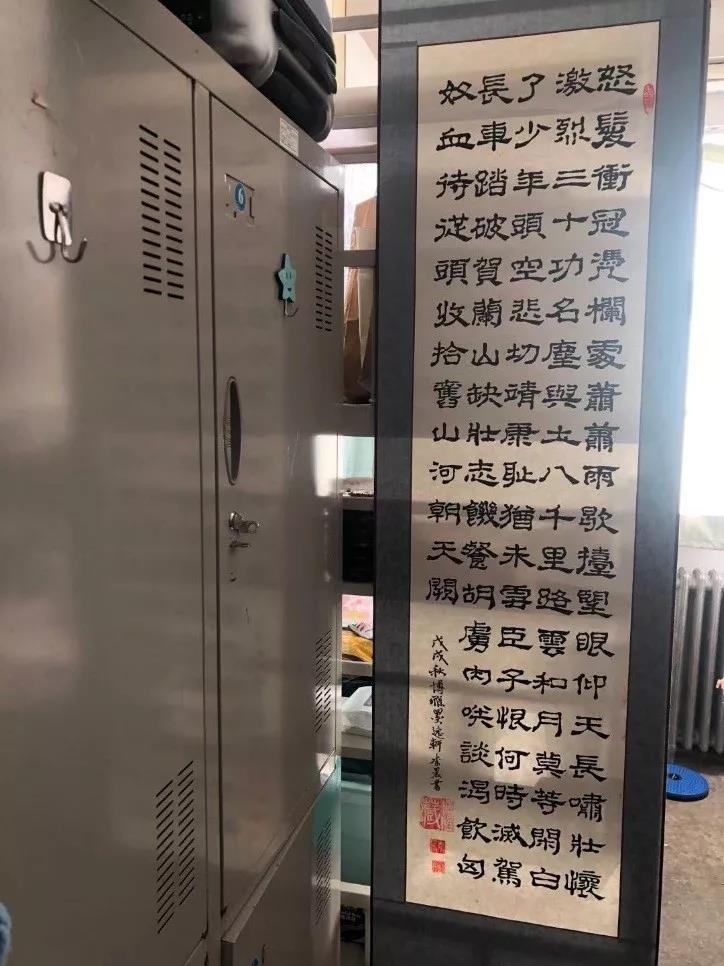 怒髮衝冠憑欄處蕭蕭雨歇擡朢眼仰天長嘯壯懷
激烈三十功名塵與土八千里路雲和月莫等閑白
了少年頭空悲切靖康耻猶未雪臣子恨何時滅駕
長車踏破賀蘭山缺壯志饑餐胡虜肉咲談渴飲匈
奴血待從頭收拾舊山河朝天闕
戊戌秋博雅墨遠軒書
6